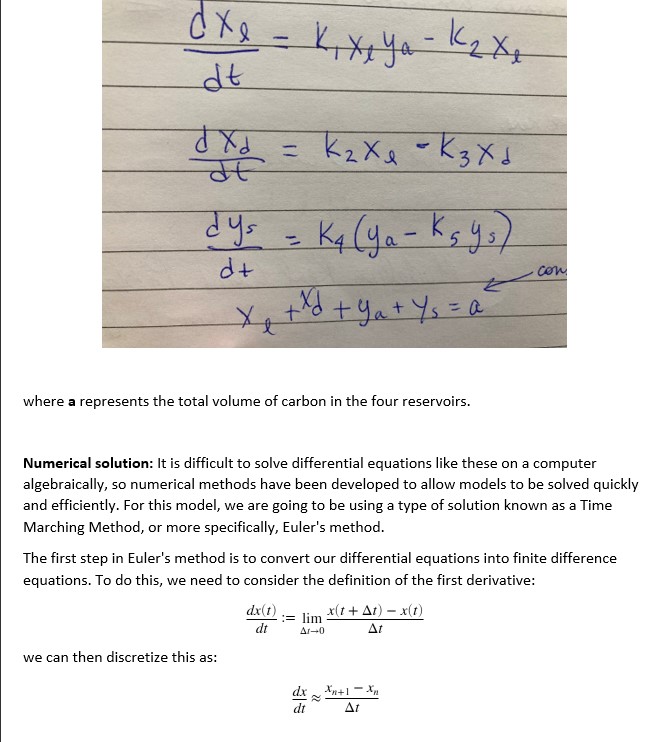 dxₗ/dt = k₁xₗyₐ - k₂xₗ
dx_d/dt = k₂xₗ - k₃x_d
dyₛ/dt = k₄(yₐ - k₅yₛ)
xₗ + x_d + yₐ + yₛ = a
where a represents the total volume of carbon in the four reservoirs.
Numerical solution: It is difficult to solve differential equations like these on a computer
algebraically, so numerical methods have been developed to allow models to be solved quickly
and efficiently. For this model, we are going to be using a type of solution known as a Time
Marching Method, or more specifically, Euler's method.
The first step in Euler's method is to convert our differential equations into finite difference
equations. To do this, we need to consider the definition of the first derivative:
dx(t)/dt := lim Δt→0 x(t + Δt) − x(t)/Δt
we can then discretize this as:
dx/dt ≈ xₙ₊₁ − xₙ/Δt